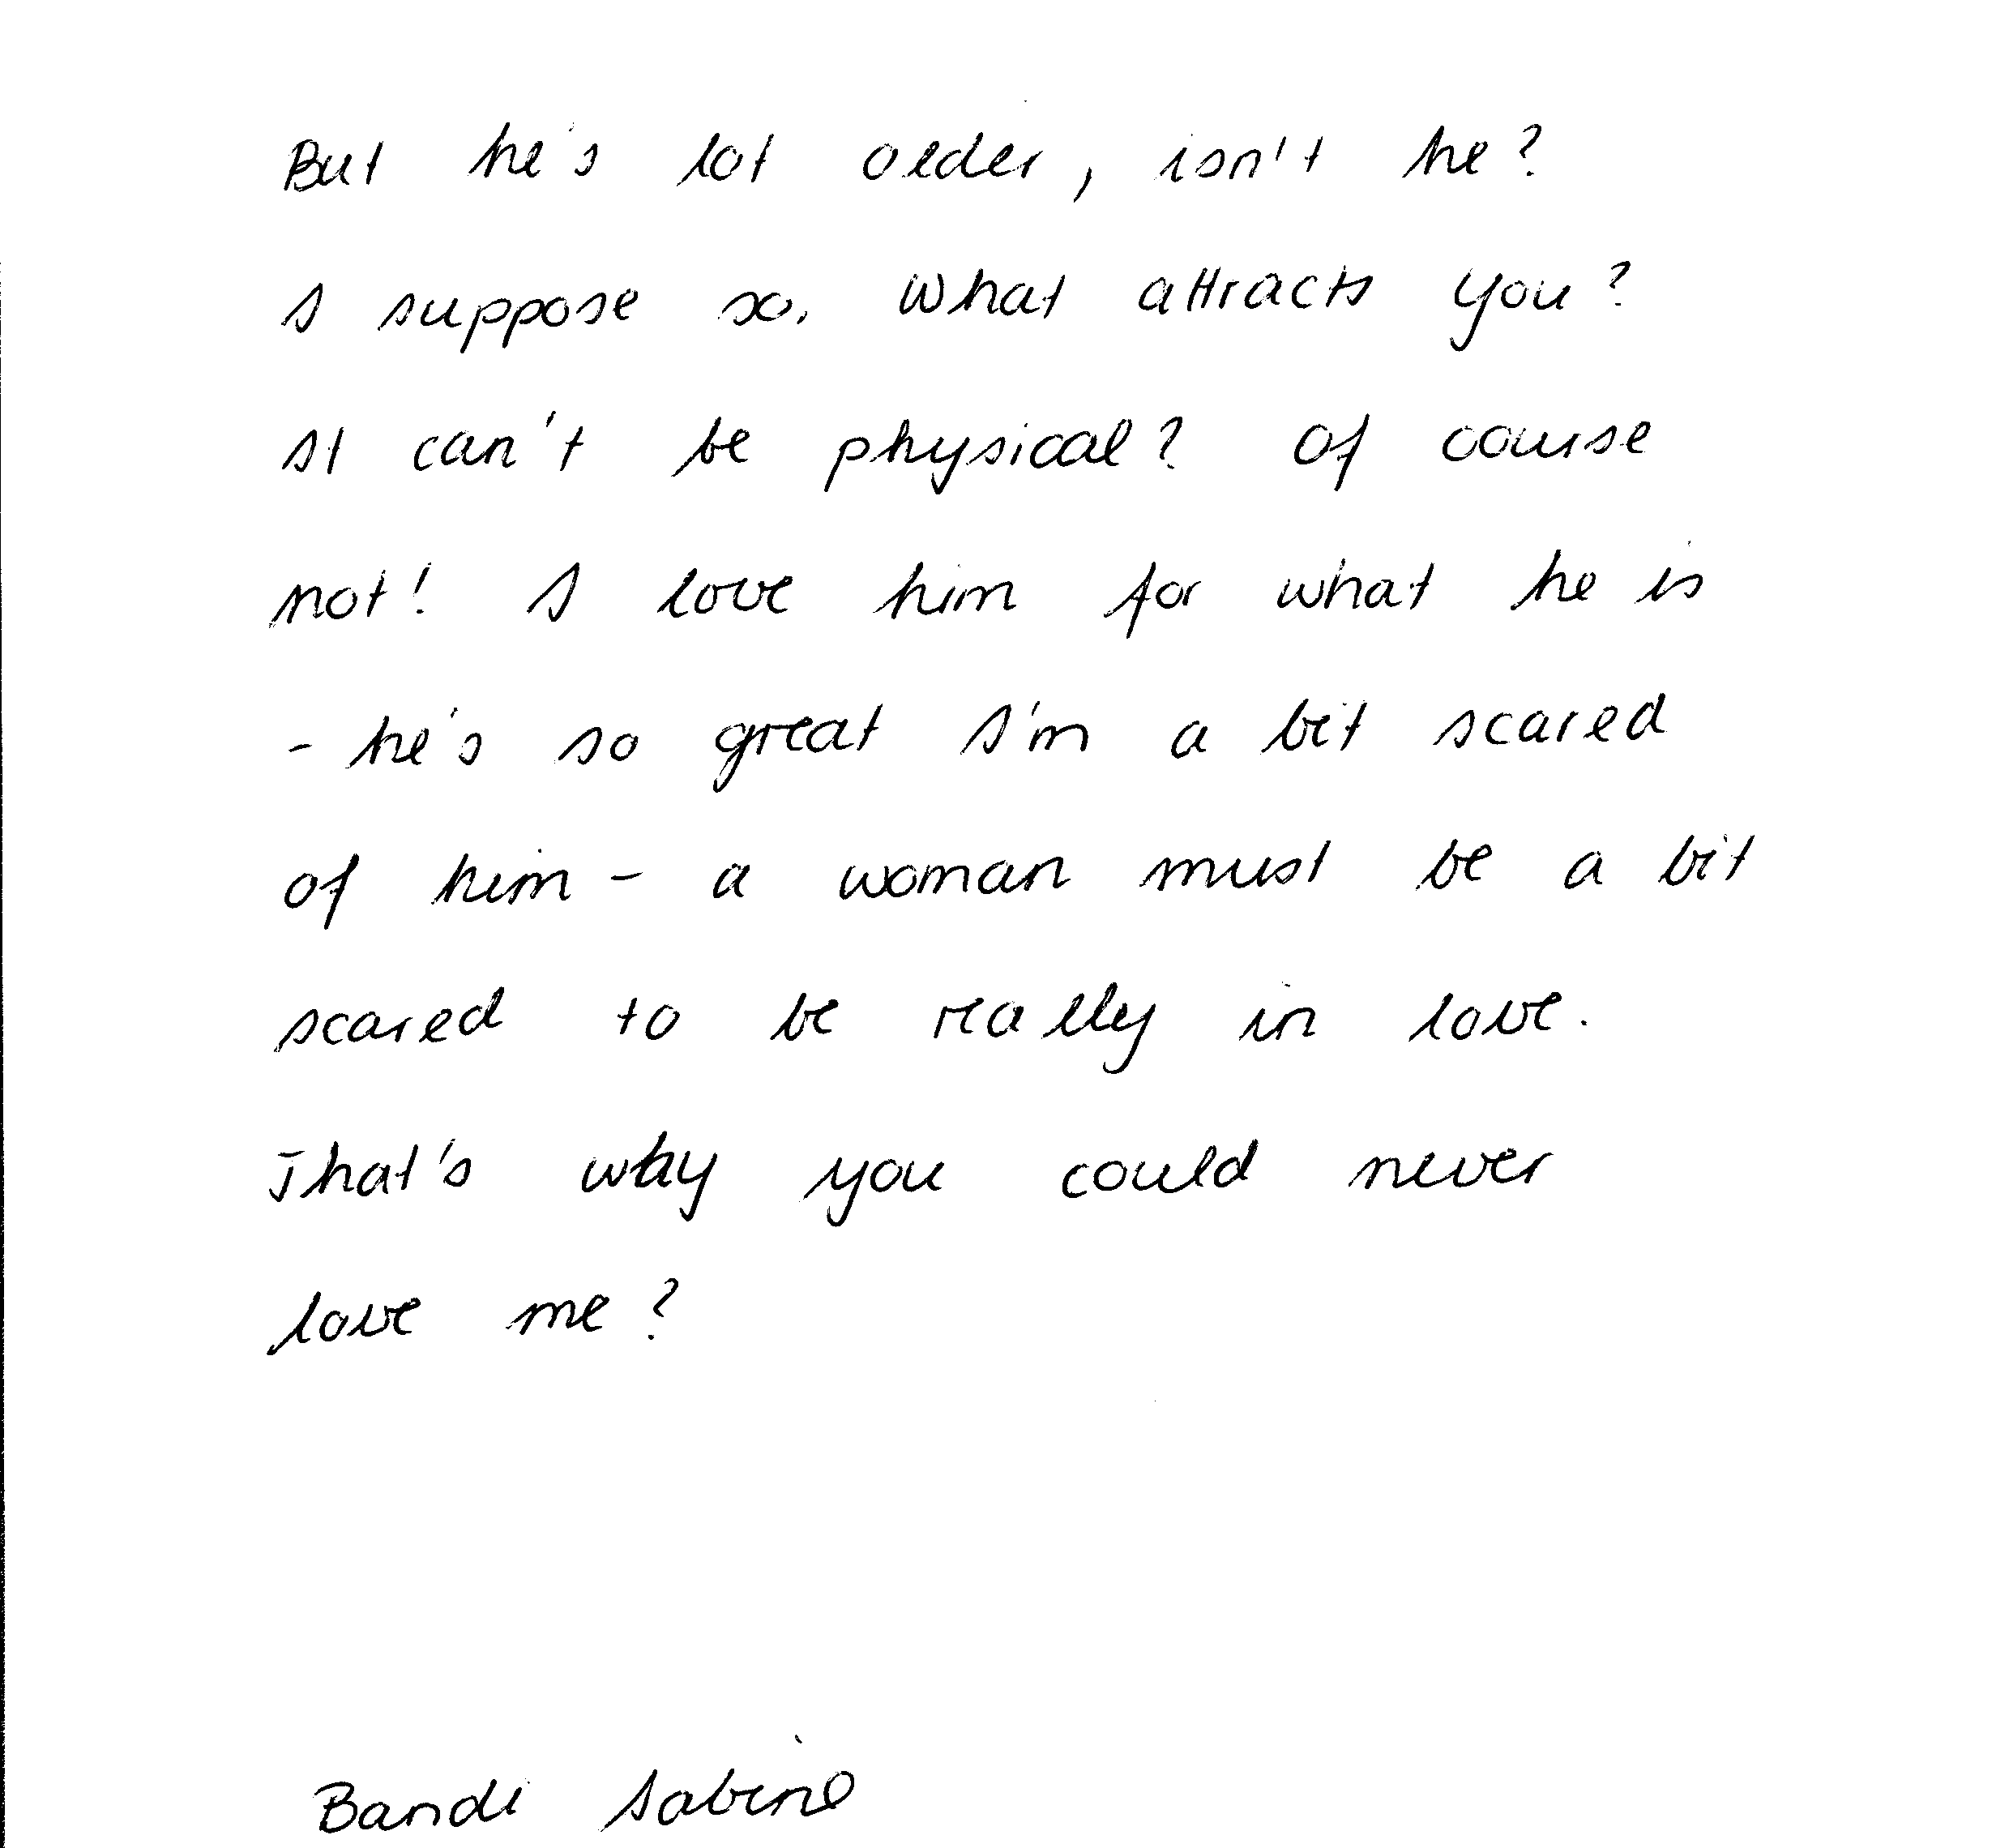 But he's lot older, isn't he?
I suppose so. What attracts you?
It can't be physical? Of course
not! I love him for what he is
- he's so great I'm a bit scared
of him - a woman must be a bit
scared to be really in love.
That's why you could never
love me?
Bandi Sabine